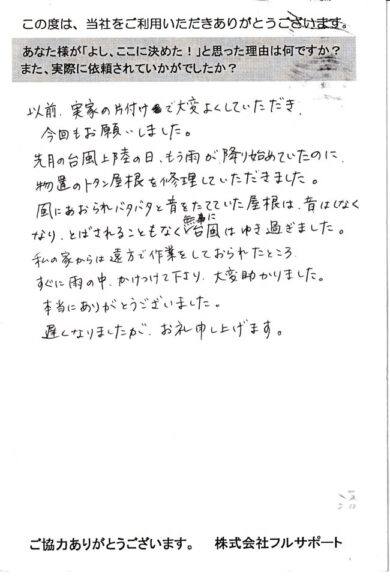 この度は、当社をご利用いただきありがとうございます。
あなた様が「よし、ここに決めた！」と思った理由は何ですか？
また、実際に依頼されていかがでしたか？
以前、実家の片付けで大変よくしていただき、
今回もお願いしました。
先月の台風上陸の日、もう雨が降り始めていたのに、
物置のトタン屋根を修理していただきました。
風にあおられバタバタと音をたてていた屋根は、音はしなく
なり、とばされることもなく無事に台風はゆき過ぎました。
私の家からは遠方で作業をしておられたところ、
すぐに雨の中、かけつけて下さり、大変助かりました。
本当にありがとうございました。
遅くなりましたが、お礼申し上げます。
ご協力ありがとうございます。　株式会社フルサポート